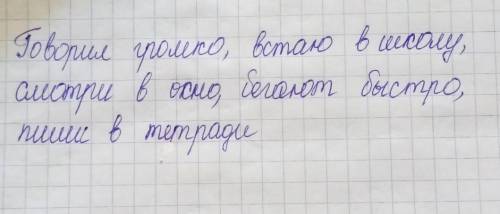 Говорил громко, встаю в школу,
смотри в окно, бегают быстро,
пишу в тетради